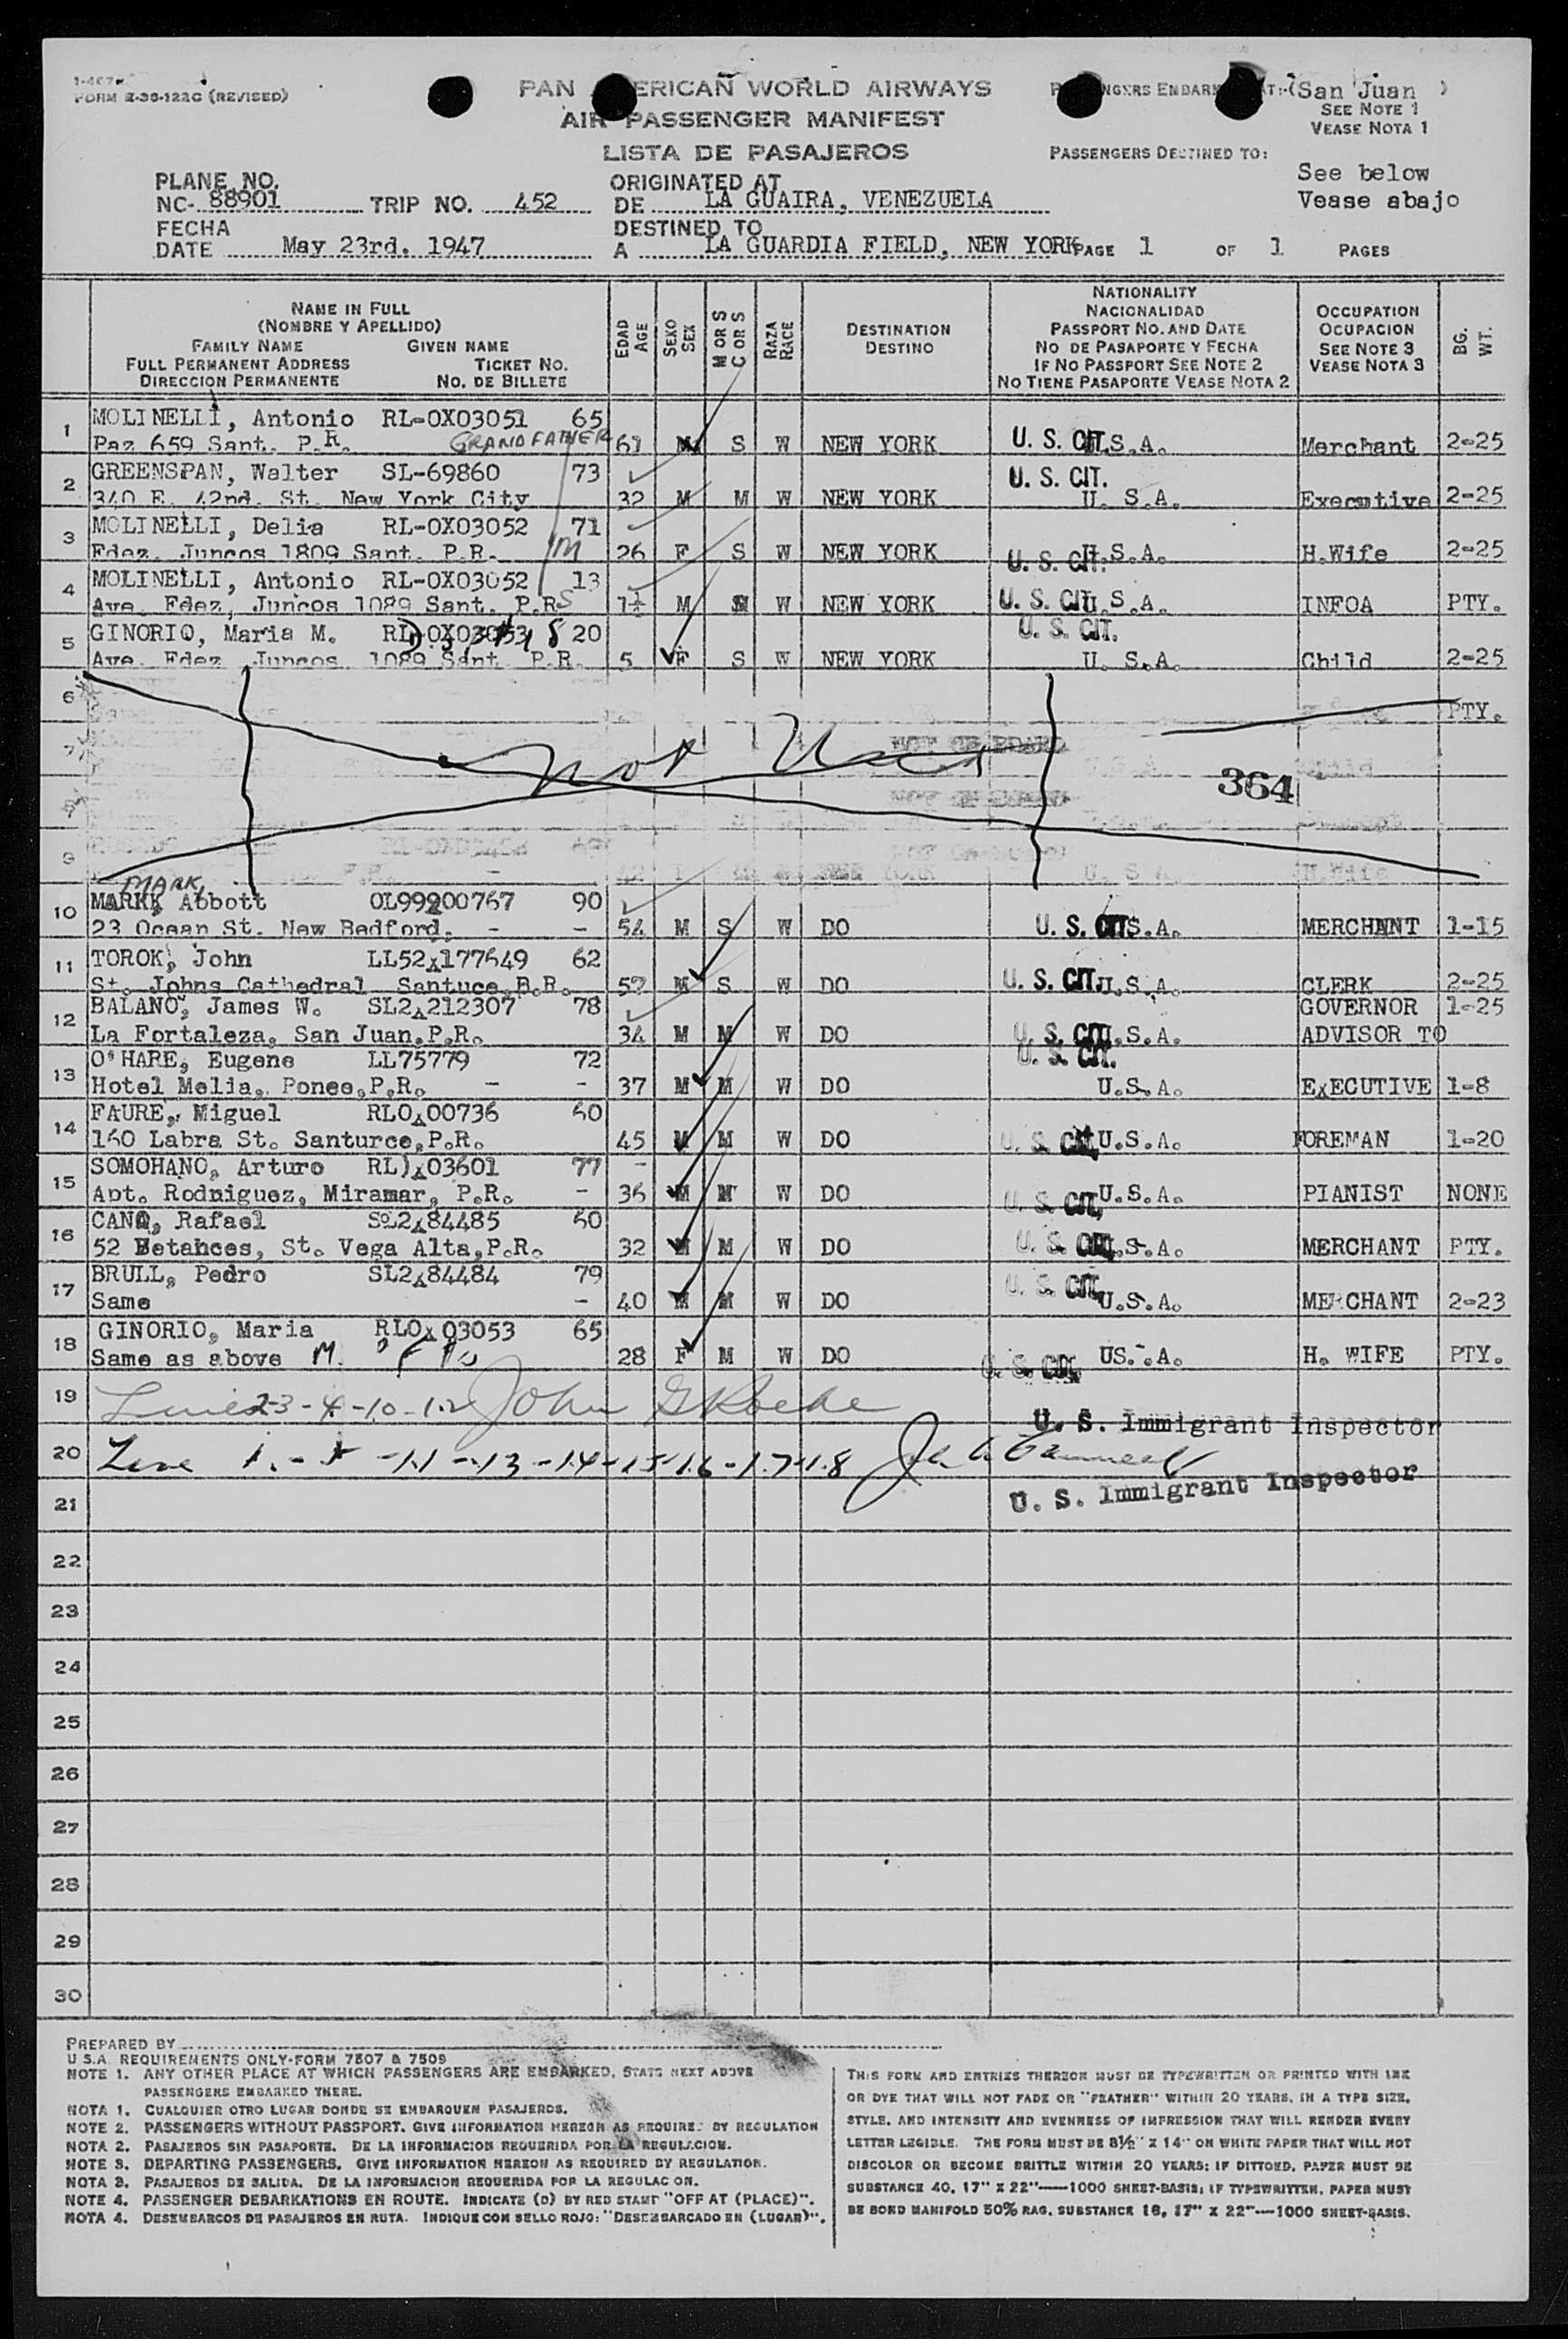 FORM E-36-122C (REVISED)
PAN AMERICAN WORLD AIRWAYS
AIR PASSENGER MANIFEST
LISTA DE PASAJEROS
PASSENGERS EMBARKED AT:-(San Juan )
SEE NOTE 1
VEASE NOTA 1
PASSENGERS DESTINED TO:
See below
Vease abajo
PLANE NO.
NC- 88901 TRIP NO. 452
FECHA
DATE May 23rd. 1947
ORIGINATED AT
DE LA GUAIRA, VENEZUELA
DESTINED TO
A LA GUARDIA FIELD, NEW YORK
PAGE 1 OF 1 PAGES
NAME IN FULL
(NOMBRE Y APELLIDO)
FAMILY NAME GIVEN NAME
FULL PERMANENT ADDRESS TICKET NO.
DIRECCION PERMANENTE NO. DE BILLETE
EDAD AGE
SEXO SEX
M OR S C OR S
RAZA RACE
DESTINATION
DESTINO
NATIONALITY
NACIONALIDAD
PASSPORT NO. AND DATE
NO DE PASAPORTE Y FECHA
IF NO PASSPORT SEE NOTE 2
NO TIENE PASAPORTE VEASE NOTA 2
OCCUPATION
OCUPACION
SEE NOTE 3
VEASE NOTA 3
BG. WT.
1 MOLINELLI, Antonio RL-OX03051 65
Paz 659 Sant. P.R. GRANDFATHER 61 M S W NEW YORK U. S. CIT. U.S.A. Merchant 2-25
2 GREENSPAN, Walter SL-69860 73 U. S. CIT.
340 E. 42nd. St. New York City 32 M M W NEW YORK U. S.A. Executive 2-25
3 MOLINELLI, Delia RL-OX03052 71
Fdez. Juncos 1809 Sant. P.R. M 26 F S W NEW YORK U. S. CIT. U.S.A. H.Wife 2-25
4 MOLINELLI, Antonio RL-OX03052 13
Ave. Fdez, Juncos 1089 Sant. P.R. S 1½ M W NEW YORK U. S. CIT. U.S.A. INFOA PTY.
5 GINORIO, Maria M. RL-OX03053 20 U. S. CIT.
Ave. Fdez Juncos 1089 Sant. P.R. 5 F S W NEW YORK U. S.A. Child 2-25
6 PTY.
7 Not Used
364
8
9
MARK
10 Abbott OL99200767 90
23 Ocean St. New Bedford. - - 54 M S W DO U. S. CIT. U.S.A. MERCHANT 1-15
11 TOROK, John LL52177649 62
St. Johns Cathedral Santuce, P.R. 52 M S W DO U. S. CIT. U.S.A. CLERK 2-25
12 BALANO, James W. SL2212307 78 GOVERNOR 1-25
La Fortaleza, San Juan.P.R. 34 M M W DO U. S. CIT. U.S.A. ADVISOR TO
13 O'HARE, Eugene LL75779 72 U. S. CIT.
Hotel Melia, Ponce,P.R. - - 37 M M W DO U.S.A. EXECUTIVE 1-8
14 FAURE, Miguel RLOX00736 60
160 Labra St. Santurce,P.R. 45 M M W DO U. S. CIT. U.S.A. FOREMAN 1-20
15 SOMOHANO, Arturo RL)X03601 77 -
Apt. Rodniguez, Miramar, P.R. - 36 M M W DO U. S. CIT. U.S.A. PIANIST NONE
16 CANO, Rafael SL284485 60
52 Betances, St. Vega Alta,P.R. 32 M M W DO U. S. CIT. U.S.A. MERCHANT PTY.
17 BRULL, Pedro SL284484 79
Same - 40 M M W DO U. S. CIT. U.S.A. MERCHANT 2-23
18 GINORIO, Maria RLOX03053 65
Same as above M. 28 F M W DO U. S. CIT. US.A. H. WIFE PTY.
19 Lines 2-3-4-10-12 John
U. S. Immigrant Inspector
20 Line 1-5-11-13-14-15-16-17-18
21 U. S. Immigrant Inspector
22
23
24
25
26
27
28
29
30
PREPARED BY
U.S.A. REQUIREMENTS ONLY-FORM 7507 & 7509
NOTE 1. ANY OTHER PLACE AT WHICH PASSENGERS ARE EMBARKED, STATE NEXT ABOVE
PASSENGERS EMBARKED THERE.
NOTA 1. CUALQUIER OTRO LUGAR DONDE SE EMBARQUEN PASAJEROS.
NOTE 2. PASSENGERS WITHOUT PASSPORT. GIVE INFORMATION HEREON AS REQUIRED BY REGULATION
NOTA 2. PASAJEROS SIN PASAPORTE. DE LA INFORMACION REQUERIDA POR LA REGULACION.
NOTE 3. DEPARTING PASSENGERS. GIVE INFORMATION HEREON AS REQUIRED BY REGULATION.
NOTA 3. PASAJEROS DE SALIDA. DE LA INFORMACION REQUERIDA POR LA REGULACION.
NOTE 4. PASSENGER DEBARKATIONS EN ROUTE. INDICATE (D) BY RED STAMP "OFF AT (PLACE)".
NOTA 4. DESEMBARCOS DE PASAJEROS EN RUTA. INDIQUE CON SELLO ROJO: "DESEMBARCADO EN (LUGAR)".
THIS FORM AND ENTRIES THEREON MUST BE TYPEWRITTEN OR PRINTED WITH INK
OR DYE THAT WILL NOT FADE OR "FEATHER" WITHIN 20 YEARS, IN A TYPE SIZE,
STYLE, AND INTENSITY AND EVENNESS OF IMPRESSION THAT WILL RENDER EVERY
LETTER LEGIBLE. THE FORM MUST BE 8½" X 14" ON WHITE PAPER THAT WILL NOT
DISCOLOR OR BECOME BRITTLE WITHIN 20 YEARS; IF DITTOED, PAPER MUST BE
SUBSTANCE 40, 17" X 22"----1000 SHEET-BASIS; IF TYPEWRITTEN, PAPER MUST
BE BOND MANIFOLD 50% RAG, SUBSTANCE 16, 17" X 22"---1000 SHEET-BASIS.